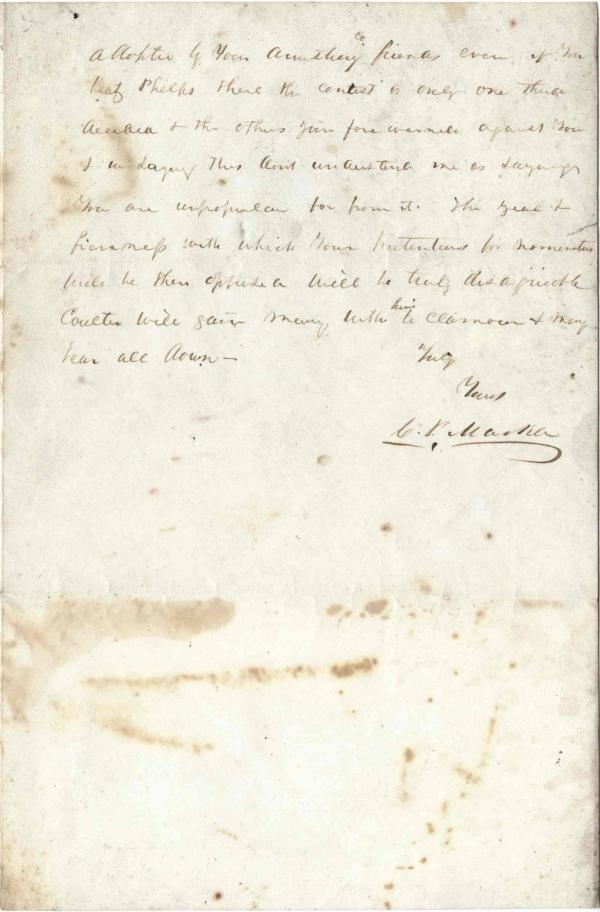 adopted by Your Co friends even if You
beat Phelps there the contest is only one third
decided & the others join fore warned against You
& in saying this dont understand me as saying
You are unpopular far from it. The zeal &
fierceness with which Your pretentions for nomination
will be then opposed will be truly disagreeable
Coulter will gain many with him to clamour & may
tear all down —
Truly
Yours